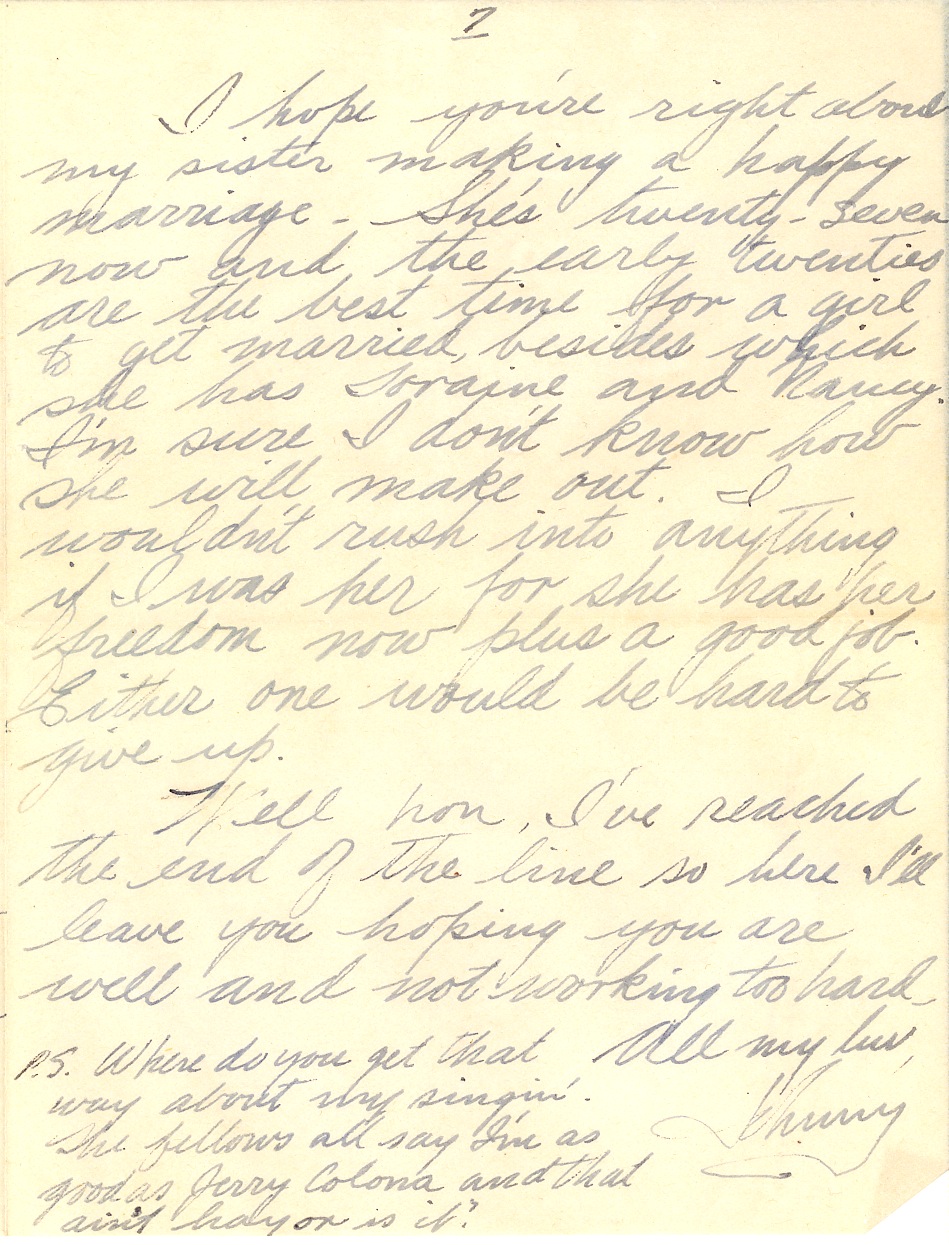 7
I hope you're right about
my sister making a happy
marriage - She's twenty-seven
now and the early twenties
are the best time for a girl
to get married, besides which
she has Loraine and Nancy.
I'm sure I don't know how
she will make out. I
wouldn't rush into anything
if I was her for she has her
freedom now plus a good job.
Either one would be hard to
give up.
Well hon, I've reached
the end of the line so here I'll
leave you hoping you are
well and not working too hard_
All my luv,
Johnny
P.S. Where do you get that
way about my singin'.
The fellows all say I'm as
good as Jerry Colona and that
ain't hay or is it".